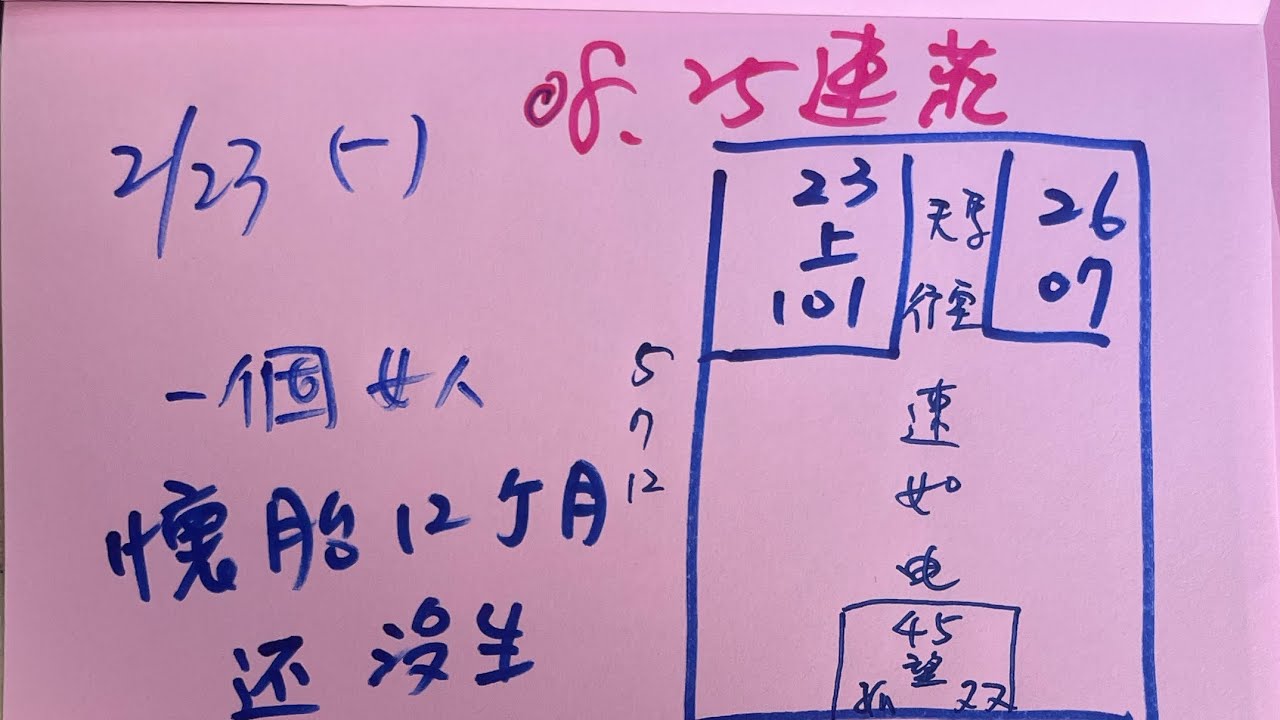 08、25連莊
2/23 (一)
一個女人
懷胎12个月
还没生
5
7
12
23
上
101
天馬
行空
26
07
速
如
电
45
望
孤 双